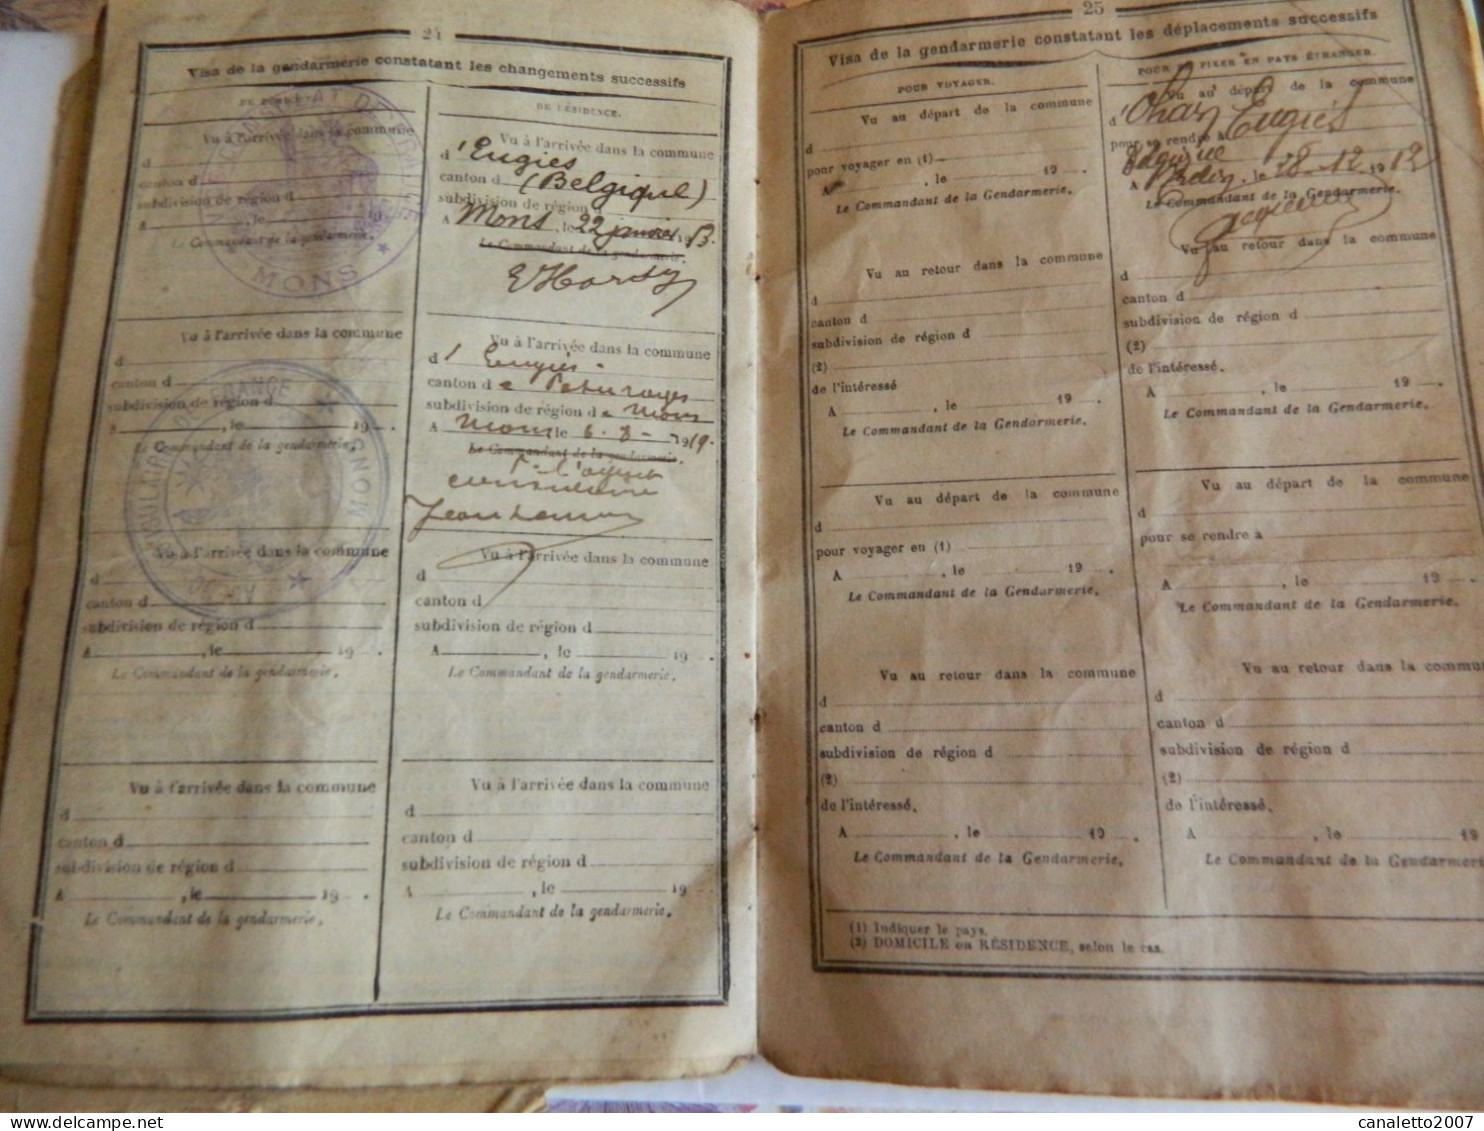 24
Visa de la gendarmerie constatant les changements successifs
DE RÉSIDENCE.
Vu à l'arrivée dans la commune
d
canton d
subdivision de région d
A , le 19
Le Commandant de la gendarmerie.
MONS
Vu à l'arrivée dans la commune
d
canton d
subdivision de région d
A , le 19 .
Le Commandant de la gendarmerie.
FRANCE
MONS
Vu à l'arrivée dans la commune
d
canton d
subdivision de région d
A , le 19 .
Le Commandant de la gendarmerie.
Vu à l'arrivée dans la commune
d
canton d
subdivision de région d
A , le 19 .
Le Commandant de la gendarmerie.
Vu à l'arrivée dans la commune
d 'Eugies
canton d (Belgique)
subdivision de région d
A Mons, le 22 janvier 1913.
Le Commandant de la gendarmerie.
E Hardy
Vu à l'arrivée dans la commune
d' Eugies
canton de Paturages
subdivision de région de Mons
A Mons le 6-8- 1919.
Le Commandant de la gendarmerie.
P. l'agent
consulaire
Vu à l'arrivée dans la commune
d
canton d
subdivision de région d
A , le 19 .
Le Commandant de la gendarmerie.
Vu à l'arrivée dans la commune
d
canton d
subdivision de région d
A , le 19 .
Le Commandant de la gendarmerie.
25
Visa de la gendarmerie constatant les déplacements successifs
POUR VOYAGER.
Vu au départ de la commune
d
pour voyager en (1)
A , le 19 .
Le Commandant de la Gendarmerie.
Vu au retour dans la commune
d
canton d
subdivision de région d
(2)
de l'intéressé
A , le 19 .
Le Commandant de la Gendarmerie.
Vu au départ de la commune
d
pour voyager en (1)
A , le 19 .
Le Commandant de la Gendarmerie.
Vu au retour dans la commune
d
canton d
subdivision de région d
(2)
de l'intéressé.
A , le 19 .
Le Commandant de la Gendarmerie.
POUR SE FIXER EN PAYS ÉTRANGER.
Vu au départ de la commune
d
pour se rendre à Eugies
Belgique
A , le 28-12 1912
Le Commandant de la Gendarmerie.
Vu au retour dans la commune
d
canton d
subdivision de région d
(2)
de l'intéressé.
A , le 19 .
Le Commandant de la Gendarmerie.
Vu au départ de la commune
d
pour se rendre à
A , le 19 .
Le Commandant de la Gendarmerie.
Vu au retour dans la commu
d
canton d
subdivision de région d
(2)
de l'intéressé.
A , le 19
Le Commandant de la Gendarmerie
(1) Indiquer le pays.
(2) DOMICILE ou RÉSIDENCE, selon le cas.
canaletto2007